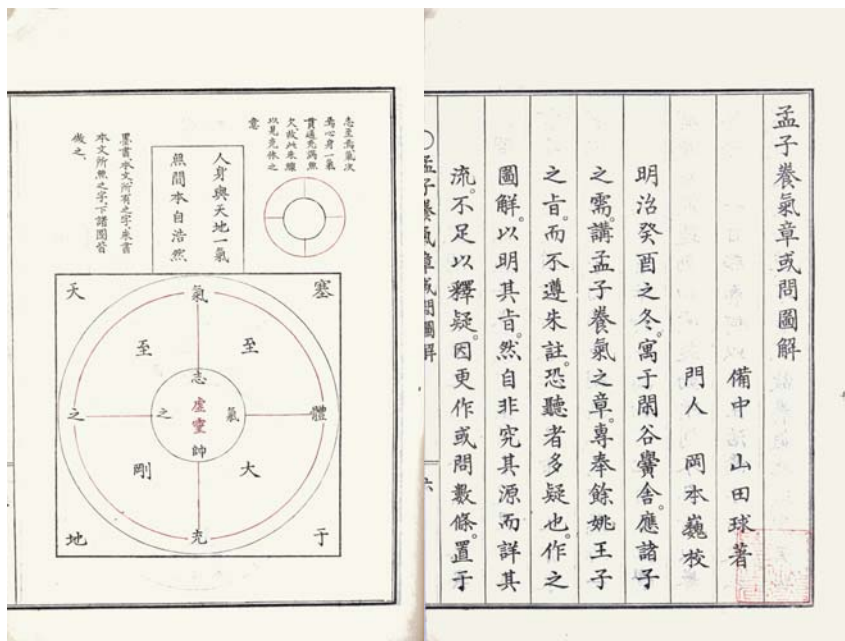 孟子養氣章或問圖解
備中 山田球著
門人 岡本巍校
明治癸酉之冬。寓于閑谷黌舍。應諸子
之需。講孟子養氣之章。專奉餘姚王子
之旨。而不遵朱註。恐聽者多疑也。作之
圖解。以明其旨。然自非究其源而詳其
流。不足以釋疑。因更作或問數條。置于
〇孟子養氣章或問圖解
六
志至焉、氣次
焉、心身一氣
貫通充滿無
欠、故此朱線
以見充体之
意
人身與天地一氣
無間本自浩然
墨書、本文所有之字、朱書
本文所無之字、下諸圖皆
倣之、
塞
于
天
地
氣
體
之
充
至
大
至
剛
志
氣
之
帥
虛靈